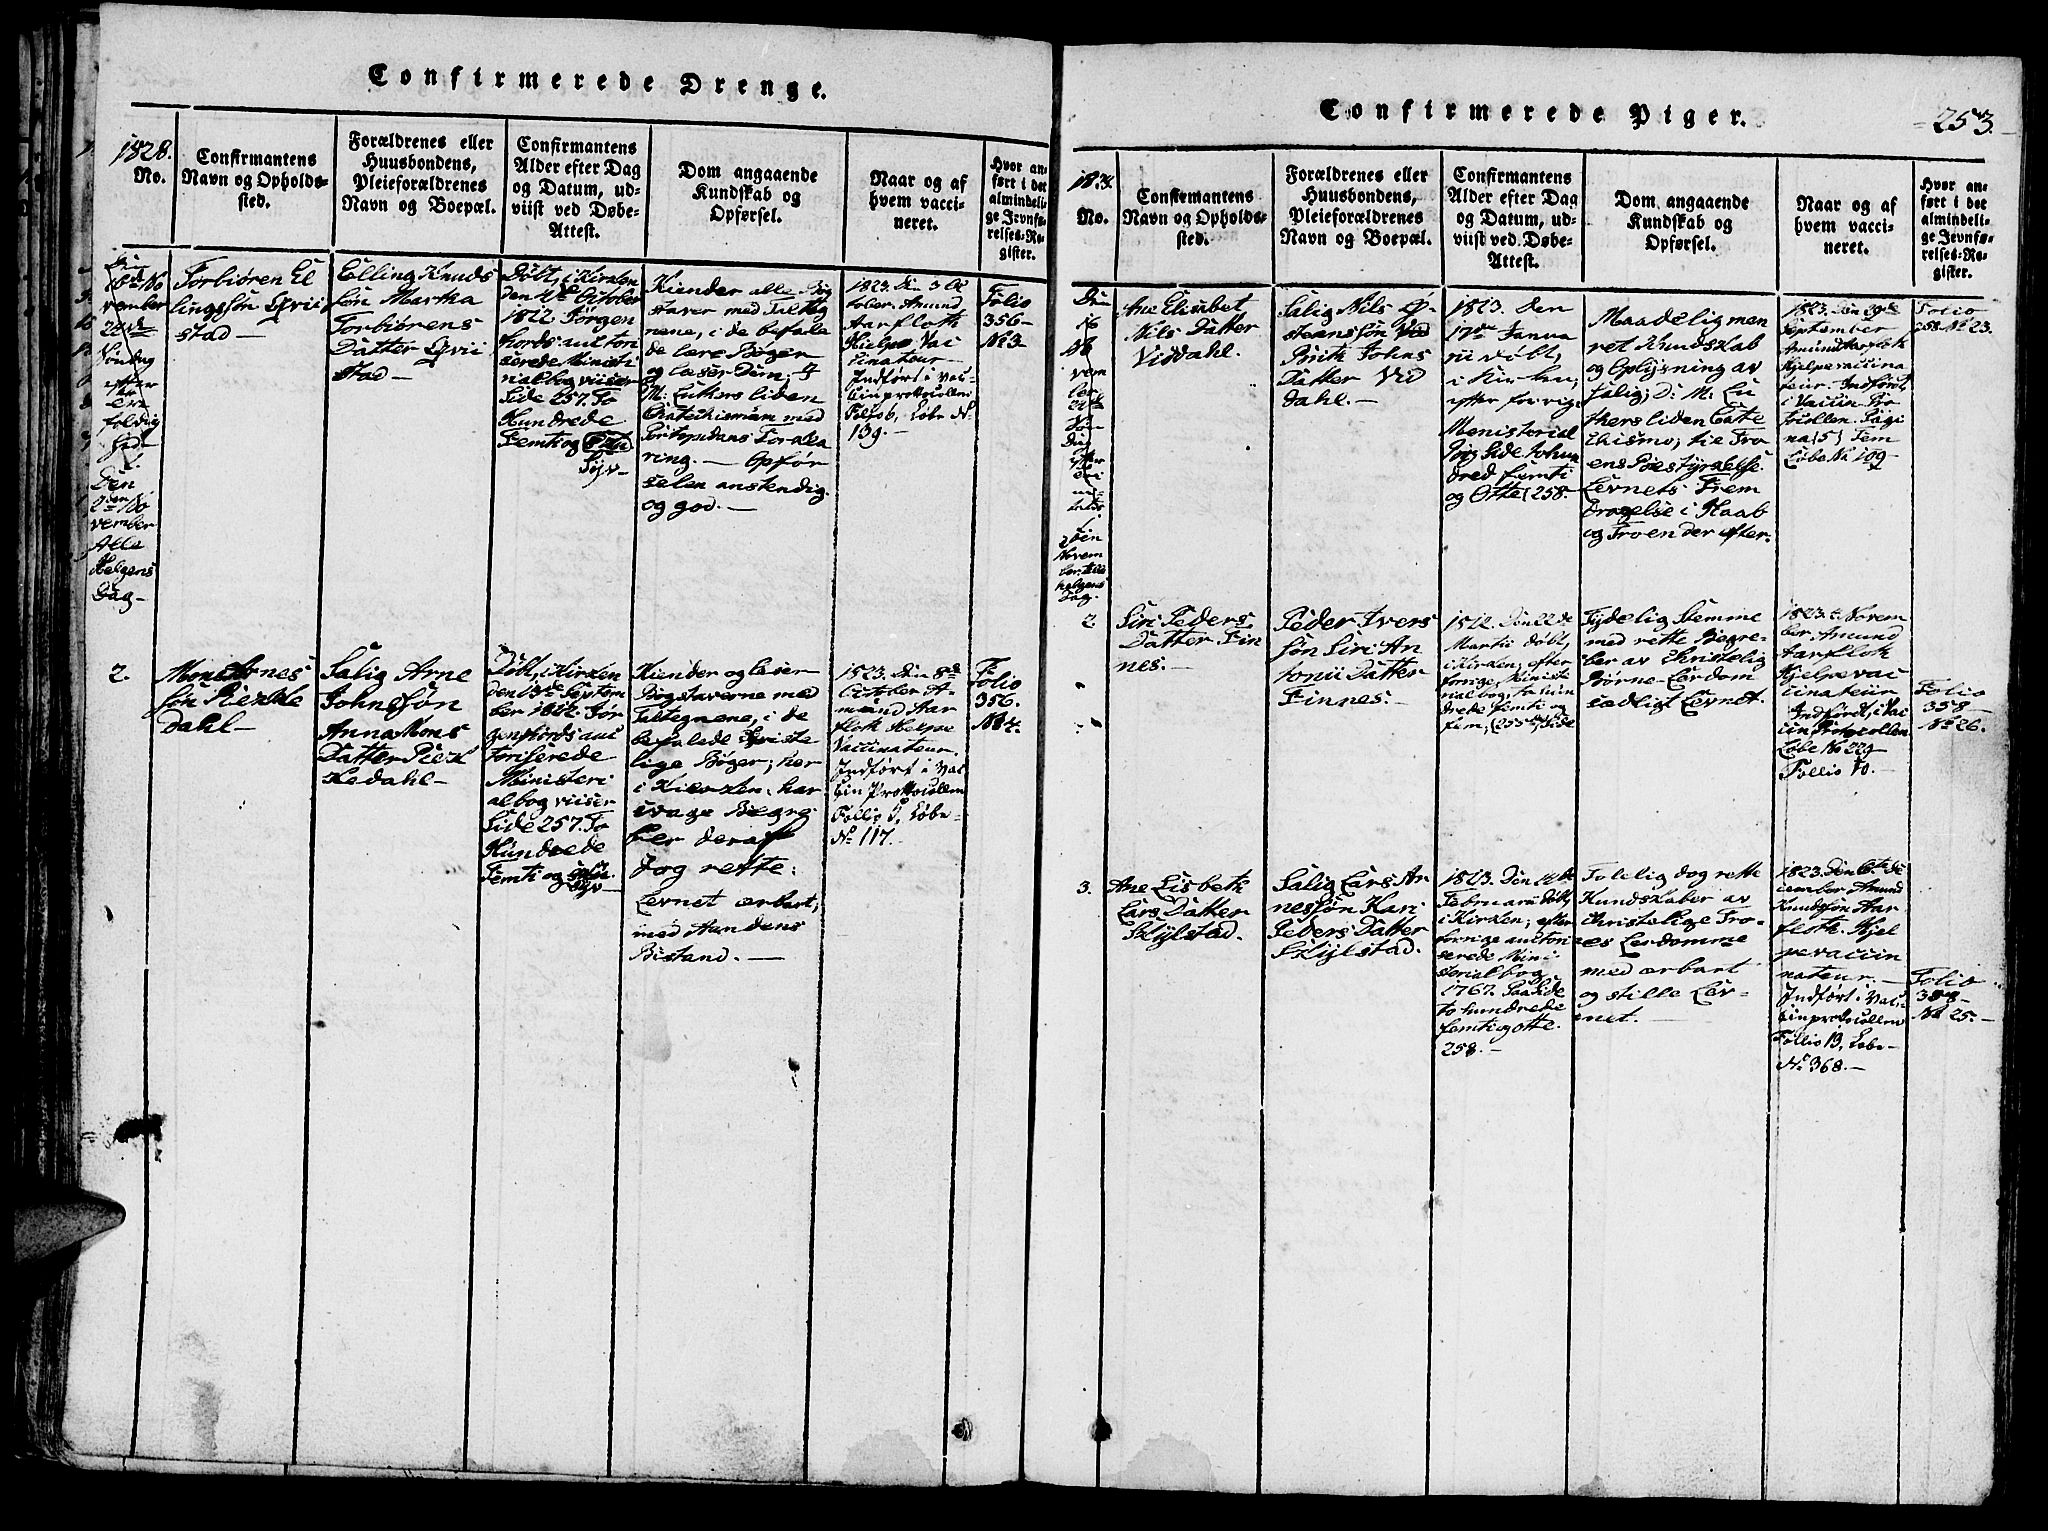 Confirmerede Drenge.
1828.
No.
Confirmantens
Navn og Opholds-
sted.
Forældrenes eller
Huusbondens,
Pleieforældrenes
Navn og Boepæl.
Confirmantens
Alder efter Dag
og Datum, ud-
viist ved Døbe-
Attest.
Dom angaaende
Kundskab og
Opførsel.
Naar og af
hvem vacci-
neret.
Hvor an-
ført i det
almindeli-
ge Jevnfø-
relses-Re-
gister.
vember
Søndag
efter
Den
2den No
vember
Alle
Helgens
Dag
Torbiören El
lingssön Qvii
stad
Elling Knuds
sön Martha
Torbiörens
Datter Qvii
stad
Döbt, i Kirken
den 4de October
1812. Jörgen
fiords auctori
serede Ministe
rialbog viiser
Side 257. To
Hundrede
Femti og
Syv
Kiender alle Bog
staver med Tilteg
nene, i de befale
de lære Bøger
og læser Dem, i
M: Luthers liden
Chatechismum med
Pontopidans Forkla
ring. Opför
selen anstendig
og god.
1823. Den 3 Oc
tober. Amund
Aarfloth
Hielpe Vac
cinateur
Indfört i Vac-
cinprotocollen
Folio 6, Löbe No
139.
Folio
356
No 3
2.
Mons Arnes
sön Riekke
dahl
Salig Arne
Johnssön
Anna Mons
Datter Riek
kedahl
Döbt, i Kirken
den 13de Septem
ber 1812. Jör
genfiords auc
toriserede
Ministeri
albog viiser
Side 257. To
Hundrede
Femti og
syv
Kiender og leser
Bogstaverne med
Tiltegnene, i de
befalede Christe
lige Bøger; her
i Kierken, har
svage Begre
ber deraf
dog rette:
Levnet ærbart,
med Aandens
Bistand.
1823. Den 8de
October A-
mund Aar
floth Hielpe
Vaccinateur.
Indført i Vac
cin Protocollen
Follio 5, Löbe
No 117.
Folio
356.
No 4.
Confirmerede Piger.
253.
No.
Confirmantens
Navn og Opholds-
sted.
Forældrenes eller
Huusbondens,
Pleieforældrenes
Navn og Boepæl.
Confirmantens
Alder efter Dag
og Datum, ud-
viist ved Døbe-
Attest.
Dom angaaende
Kundskab og
Opførsel.
Naar og af
hvem vacci-
neret.
Hvor an-
ført i det
almindeli-
ge Jevnfø-
relses-Re-
gister.
Novem
Dag.
Ane Elisabet
Nils Datter
Viddahl.
Salig Nils Ö-
steenssön
Brith Johns
Datter Vid
dahl.
1813. Den
17de Janua
rii döbt,
i Kirken,
efter forrige
Menistorial
Bog Side tohun
dred femti
og Otte (258.
Maadelig men
ret Kundskab
og Oplysning av
Salig D: M. Lu
thers liden Cate
chismo; til Tro
ens Poestyrkelse
Levnets Frem
dragelse i Haab
og Troen der efter.
1823. Den 29de
September
Amund Aarfloth
Hjelpe vaccina
teur. Indfördt
i Vaccin Pro
tocollen. Pagi
na (5) Fem
Löbe No 109
Folio
358. No 23.
2.
Siri Peders
Datter Fin
nes.
Peder Ivers
sön Siri An
tonii Datter
Finnes.
1812. Den 22de
Martii döbt,
i Kirken; efter
forrige Ministe
rialbog, to hun
drede femti og
fem, (255 Side
Tydelig Stemme
med rette Begre-
ber av Christelig
Börne-Lerdom
sædligt Levnet.
1823. Novem
ber. Amund
Aarfloth
Hjelpevac
cinateur
Indfördt, i Vac
cin Protocollen
Löbe No 229
Follio 10.
Folio
358
No 26.
3.
Ane Lisbeth
Lars Datter
Skylstad.
Salig Lars Ar
nessön Kari
Peders Datter
Skylstad.
1813. Den 14de
Februarii döbt,
i Kirken; efter
forrige auctori
serede Mini
storialbog
1767. Paa Side
to hundrede
femti og otte.
258.
Tolelig dog rette
Kundskaber av
christelige Tro-
es Lerdomme
med ærbart
og stille Lev-
net.
1823. Den 6te De
cember Amund
Knudssön Aar
floth. Hjel
pevaccin
nateur
Indført i Vac-
cinprotocollen
Follio 13, Löbe
No 368.
Folio
358
No 25.